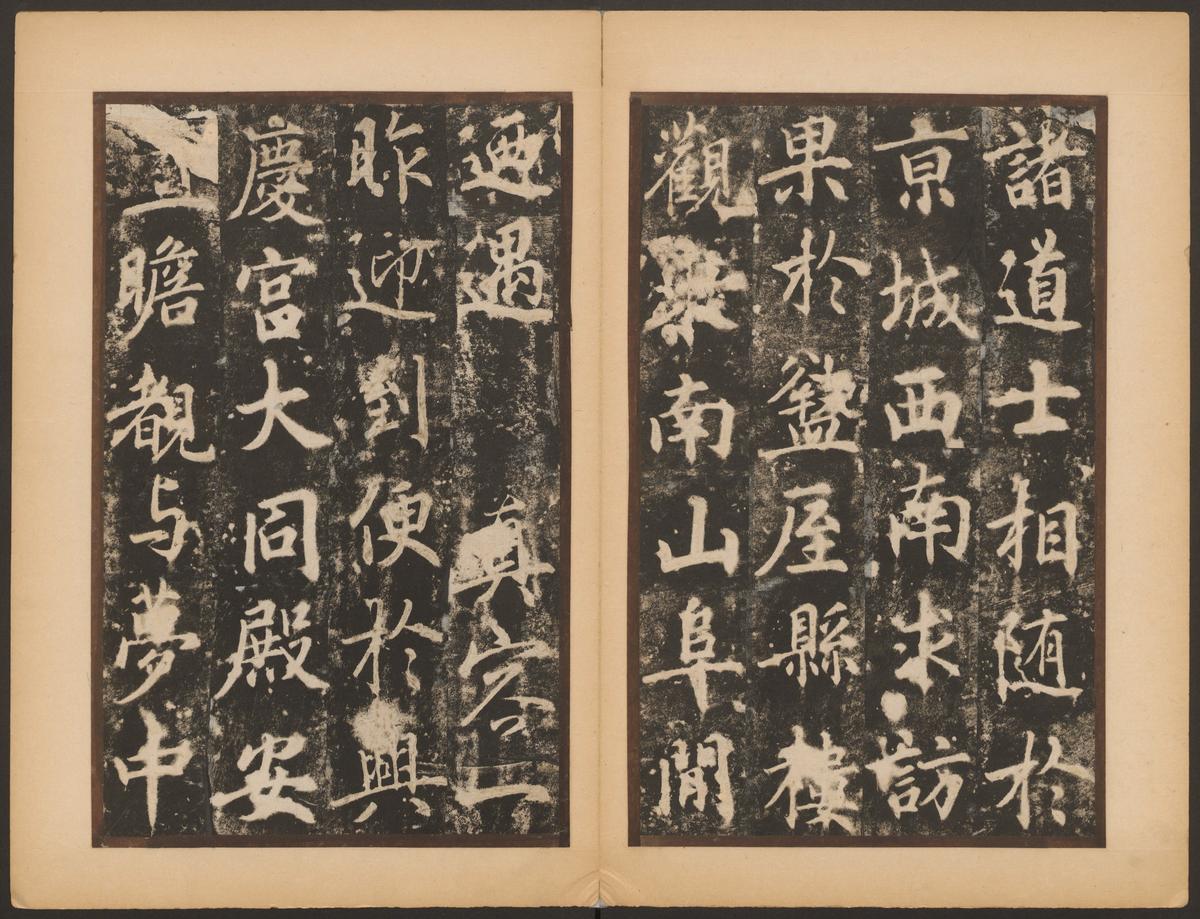 諸道士相随於
亰城西南求訪
果於盩厔縣樓
觀南山阜閒
迺遇真容一
昨迎到便於興
慶宮大同殿安
置瞻覩与夢中